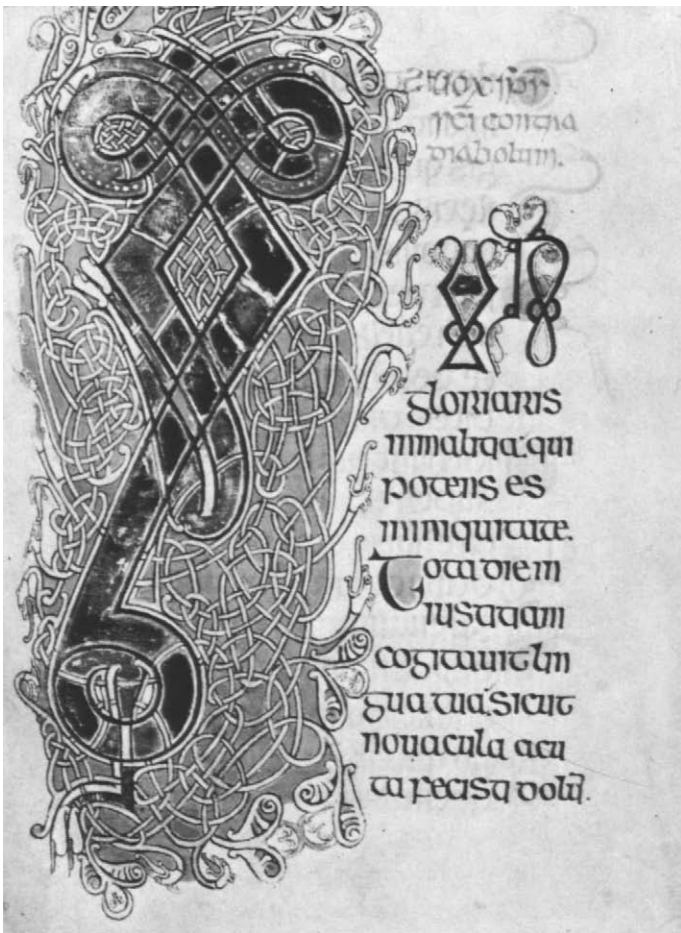 uox
contra
diabolum.
gloriaris
inmalitia: qui
potens es
ininiquitate.
Tota die in
iustitiam
cogitauit lin
gua tua: Sicut
nouacula acu
ta fecisti dolū.